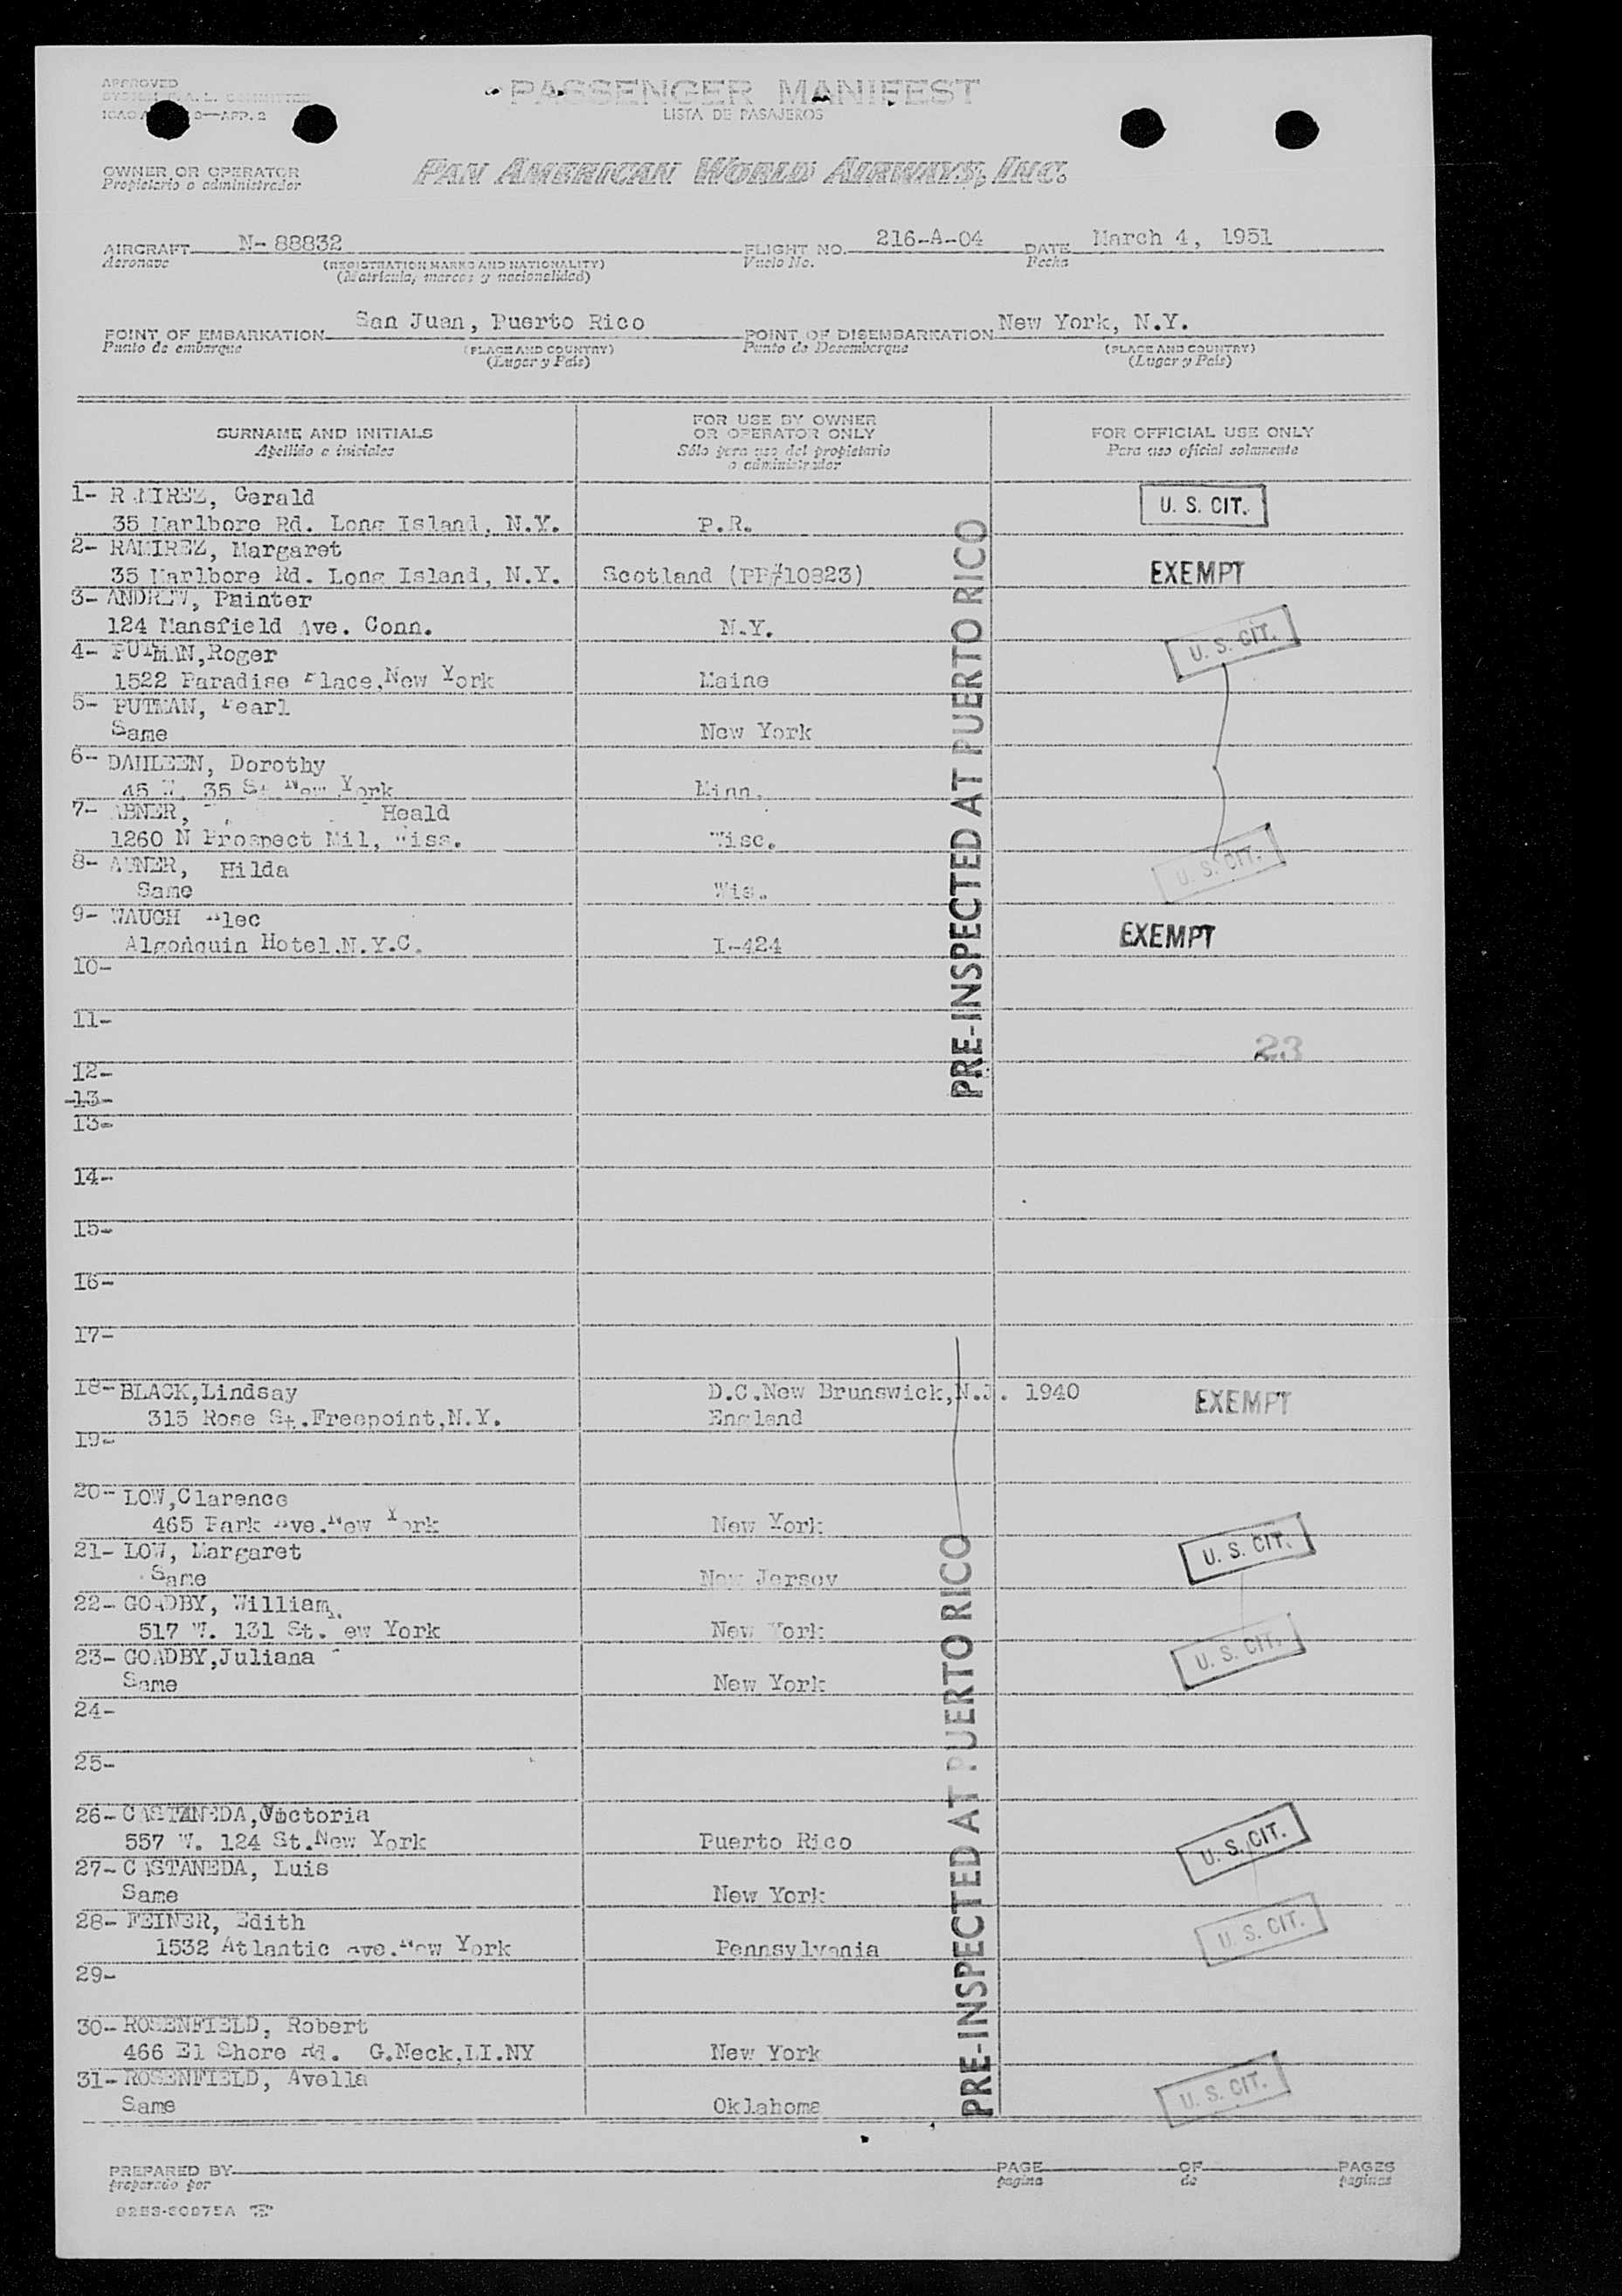 APPROVED
PASSENGER MANIFEST
LISTA DE PASAJEROS
OWNER OR OPERATOR
Propietario o administrador
PAN AMERICAN WORLD AIRWAYS, INC.
AIRCRAFT N-88832 FLIGHT NO. 216-A-04 DATE March 4, 1951
Aeronave (REGISTRATION MARKS AND NATIONALITY) Vuelo No. Fecha
(Matricula, marcas y nacionalidad)
POINT OF EMBARKATION San Juan, Puerto Rico POINT OF DISEMBARKATION New York, N.Y.
Punto de embarque (PLACE AND COUNTRY) Punto de Desembarque (PLACE AND COUNTRY)
(Lugar y País) (Lugar y País)
SURNAME AND INITIALS FOR USE BY OWNER OR OPERATOR ONLY FOR OFFICIAL USE ONLY
Apellido e iniciales Sólo para uso del propietario o administrador Para uso oficial solamente
1- RAMIREZ, Gerald U. S. CIT.
35 Marlboro Rd. Long Island, N.Y. P.R.
2- RAMIREZ, Margaret
35 Marlboro Rd. Long Island, N.Y. Scotland (PP#10823) EXEMPT
3- ANDREW, Painter
124 Mansfield Ave. Conn. N.Y.
U. S. CIT.
4- PUTMAN,Roger
1522 Paradise Place,New York Maine
5- PUTMAN, Pearl
Same New York
6- DAHLEEN, Dorothy
45 W. 35 St.New York Minn.
7- ABNER, Heald
1260 N Prospect Mil, Wiss. Wisc.
8- ABNER, Hilda U. S. CIT.
Same Wis.
9- WAUGH Alec
Algonquin Hotel.N.Y.C. I-424 EXEMPT
10-
11-
23
12-
-13-
13-
14-
15-
16-
17-
PRE-INSPECTED AT PUERTO RICO
18- BLACK,Lindsay D.C.New Brunswick,N.J. 1940 EXEMPT
315 Rose St.Freepoint,N.Y. England
19-
20- LOW,Clarence
465 Park Ave.New York New York
21- LOW, Margaret U. S. CIT.
Same New Jersey
22- GOADBY, William
517 W. 131 St. ew York New York
23- GOADBY,Juliana U. S. CIT.
Same New York
24-
25-
26- CASTANEDA,Victoria
557 W. 124 St.New York Puerto Rico U. S. CIT.
27- CASTANEDA, Luis
Same New York
28- FEINER, Edith U. S. CIT.
1532 Atlantic Ave.New York Pennsylvania
29-
30- ROSENFIELD, Robert
466 El Shore Rd. G.Neck,LI.NY New York
31- ROSENFIELD, Avella U. S. CIT.
Same Oklahoma
PRE-INSPECTED AT PUERTO RICO
PREPARED BY PAGE OF PAGES
preparado por pagina de paginas